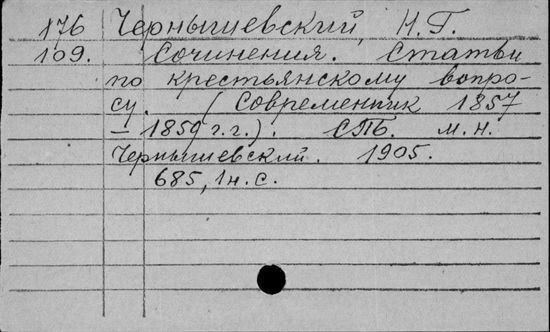 176 Чернышевский, Н.Г.
109. Сочинения. Статьи
по крестьянскому вопро-
су. (Современник 1857
— 1859 г.г.). СПБ. М.Н.
Чернышевский. 1905.
685, 1н.с.